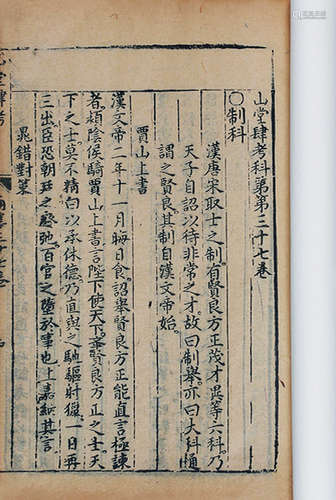 山堂肆考科第第三十七卷
○制科
漢唐宋取士之制有賢良方正茂才異等六科乃
天子自詔以待非常之才故曰制舉亦曰大科通
謂之賢良其制自漢文帝始
賈山上書
漢文帝二年十一月晦日食詔舉賢良方正能直言極諫
者潁陰侯騎賈山上書言陛下使天下舉賢良方正之士天
下之士莫不精白以承休德乃直與之馳驅射獵一日再
三出臣恐朝廷之廢弛百官之墮於事也上嘉納其言
晁錯對策
山堂肆考